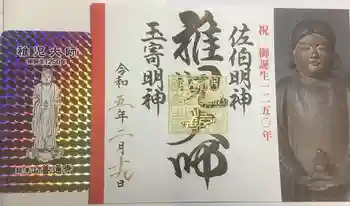 稚児大師
祝 御誕生一二五〇年
佐伯明神
稚児大師
玉寄明神
令和五年二月十九日